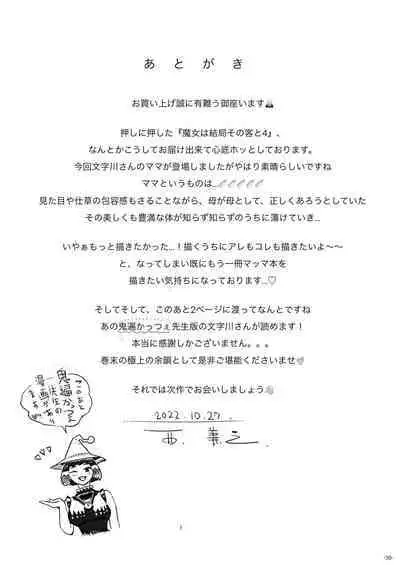 あとがき
お買い上げ誠に有難う御座います
押しに押した『魔女は結局その客と4』、
なんとかこうしてお届け出来て心底ホッとしております。
今回文字川さんのママが登場しましたがやはり素晴らしいですね
ママというものは…
見た目や仕草の包容感もさることながら、母が母として、正しくあろうとしていた
その美しくも豊満な体が知らず知らずのうちに蕩けていき…
いやぁもっと描きたかった…！描くうちにアレもコレも描きたいよ〜〜
と、なってしまい既にもう一冊マッマ本を
描きたい気持ちになっております…♡
そしてそして、このあと2ページに渡ってなんとですね
あの鬼遍かっつぇ先生版の文字川さんが読めます！
本当に感謝しかございません。。。
巻末の極上の余韻として是非ご堪能くださいませ
それでは次作でお会いしましょう
2022.10.27.
鬼遍かっつぇ
先生の
漫画があり
ます